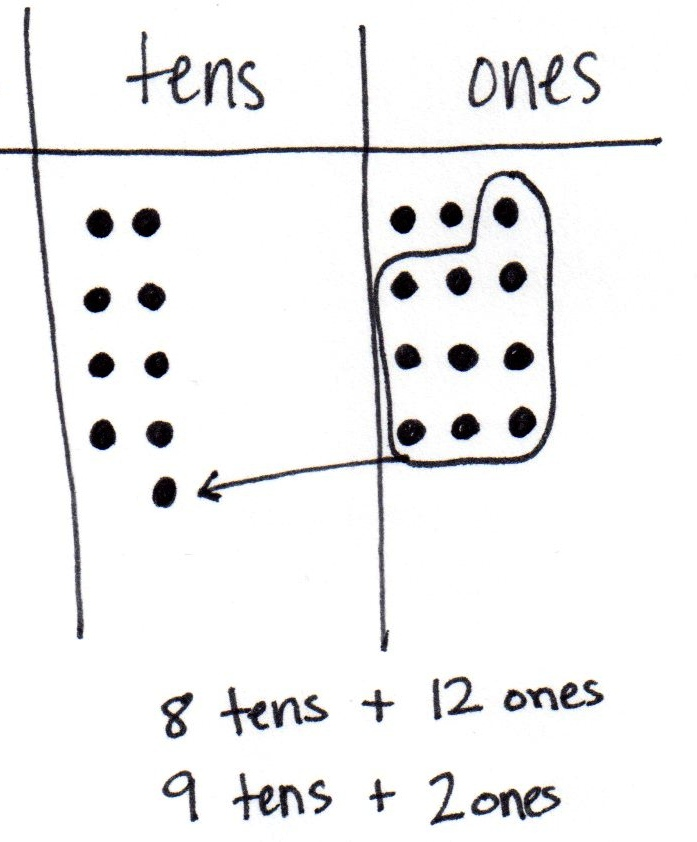 tens ones
8 tens + 12 ones
9 tens + 2 ones